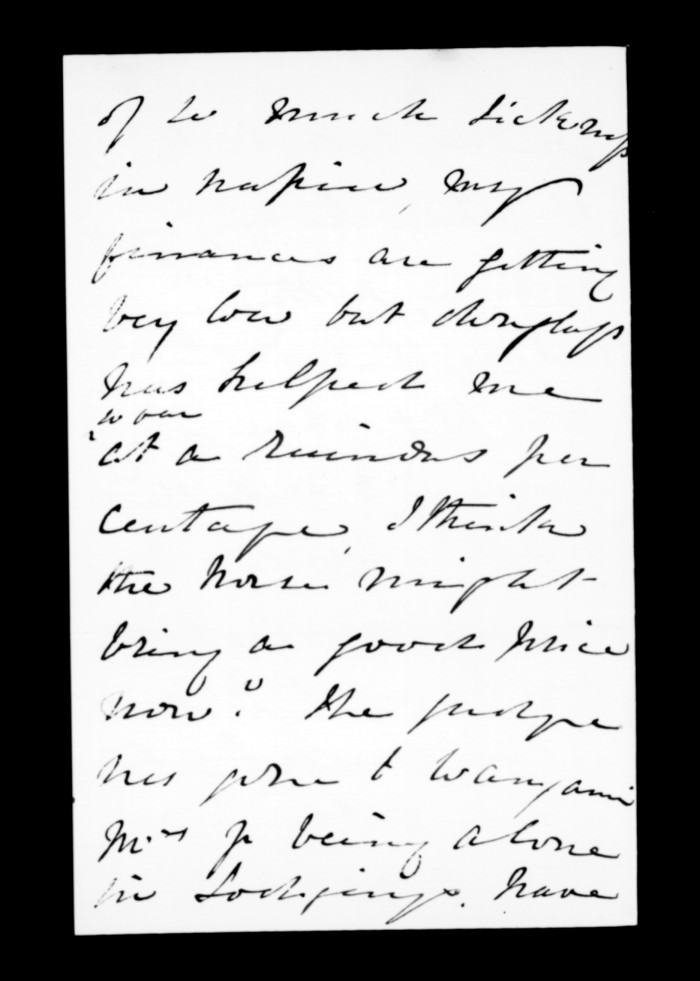 of so much sickness
in napier, my
finances are getting
very low but douglass
has helped me
at a ruinous per
centage, I think
the horse might
bring a good price
now? The judge
has gone to Wanganui
Mrs J being alone
in Lodgings. have